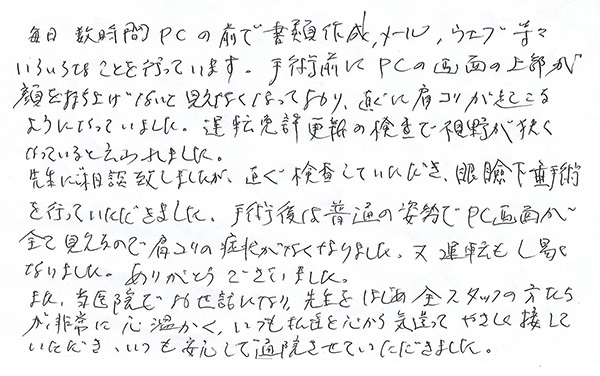 毎日 数時間 PCの前で書類作成、メール、ウェブ等々
いろいろなことを行っています。手術前に PCの画面の上部が
顔を持ち上げないと見えなくなっており、直ぐに肩コリが起こる
ようになっていました。運転免許更新の検査で視野が狭く
なっていると云われました。
先生に相談致しましたが、直ぐ検査していただき、眼瞼下垂手術
を行っていただきました。手術後は普通の姿勢でPC画面が
全て見えるので肩コリの症状がなくなりました。又 運転もし易く
なりました。ありがとうございました。
また、当医院でお世話になり、先生をはじめ全スタッフの方たち
が非常に心温かく、いつも私達を心から気遣って やさしく接して
いただき、いつも安心して通院させていただきました。